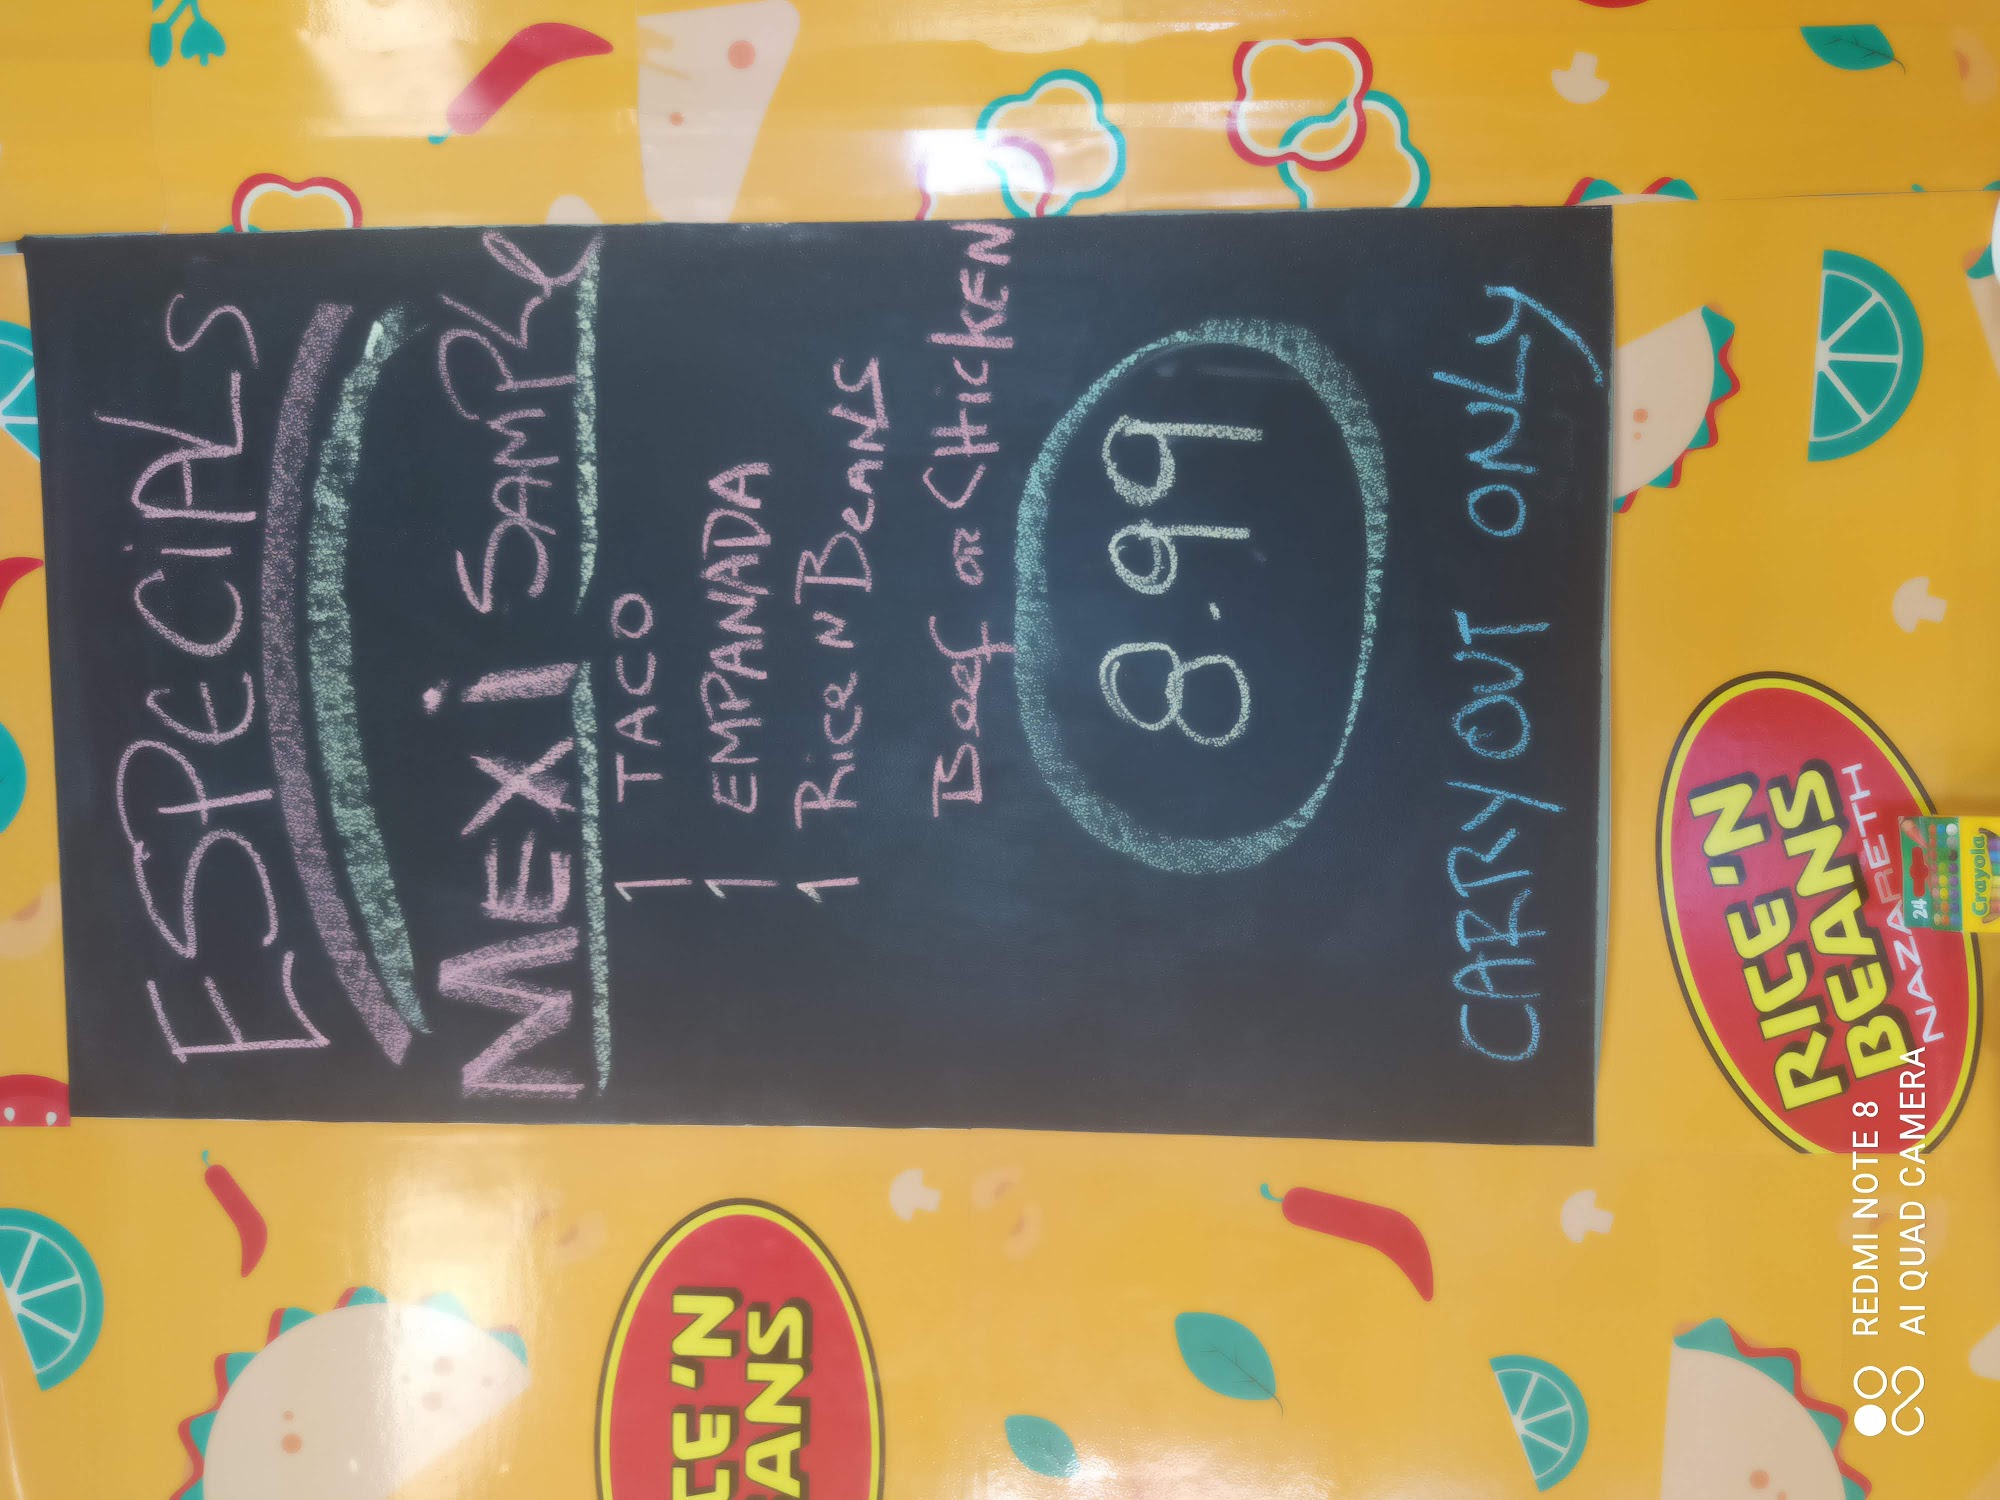 ESPECIALS
MEXi SAMPLE
1 TACO
1 EMPANADA
1 Rice N Beans
Beef or Chicken
8.99
CARRYOUT ONLY
RICE'N
BEANS
NAZARETH
24
Crayola
CE'N
ANS
REDMI NOTE 8
AI QUAD CAMERA